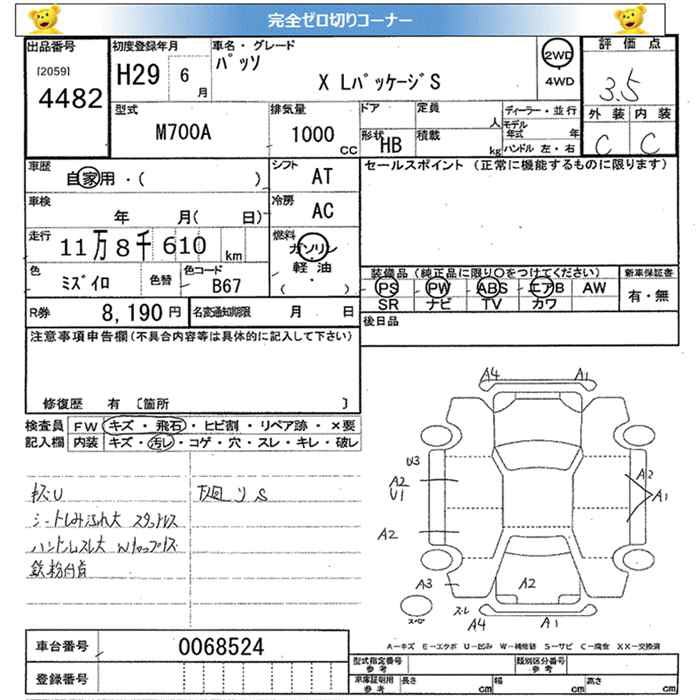 完全ゼロ切りコーナー
出品番号 初度登録年月 車名・グレード 評価点
[2059]
4482
H29 6 月
パッソ
X LパッケージS
2WD
4WD
3.5
外装 内装
C C
型式 排気量 ドア 定員 人 ディーラー・並行
M700A 1000 CC
モデル年式 年
形状 HB 積載 kg ハンドル 左・右
車歴 自家用・( )
シフト AT
セールスポイント(正常に機能するものに限ります)
車検 年 月( 日)
冷房 AC
走行 11万8千610 km
燃料 ガソリン
軽油
( )
色 ミズイロ 色替 色コード B67
装備品(純正品に限り○をつけてください) 新車保証書
PS PW ABS エアB AW 有・無
SR ナビ TV カワ
R券 8,190円 名変通知期限 月 日
後日品
注意事項申告欄(不具合内容等は具体的に記入して下さい)
修復歴 有 〔箇所 〕
検査員 FW キズ・飛石・ヒビ割・リペア跡・×要
記入欄 内装 キズ・汚レ・コゲ・穴・スレ・キレ・破レ
A4 A1
U3
A2
U1
A2
A1
A2
A3
A2
スレ
A4 A1
A-キズ E-エクボ U-凹み W-補修跡 S-サビ C-腐食 XX-交換済
車台番号 0068524
登録番号
型式指定番号 参考 類別区分番号 参考
車庫証明用 参考 長さ cm 幅 cm 高さ cm